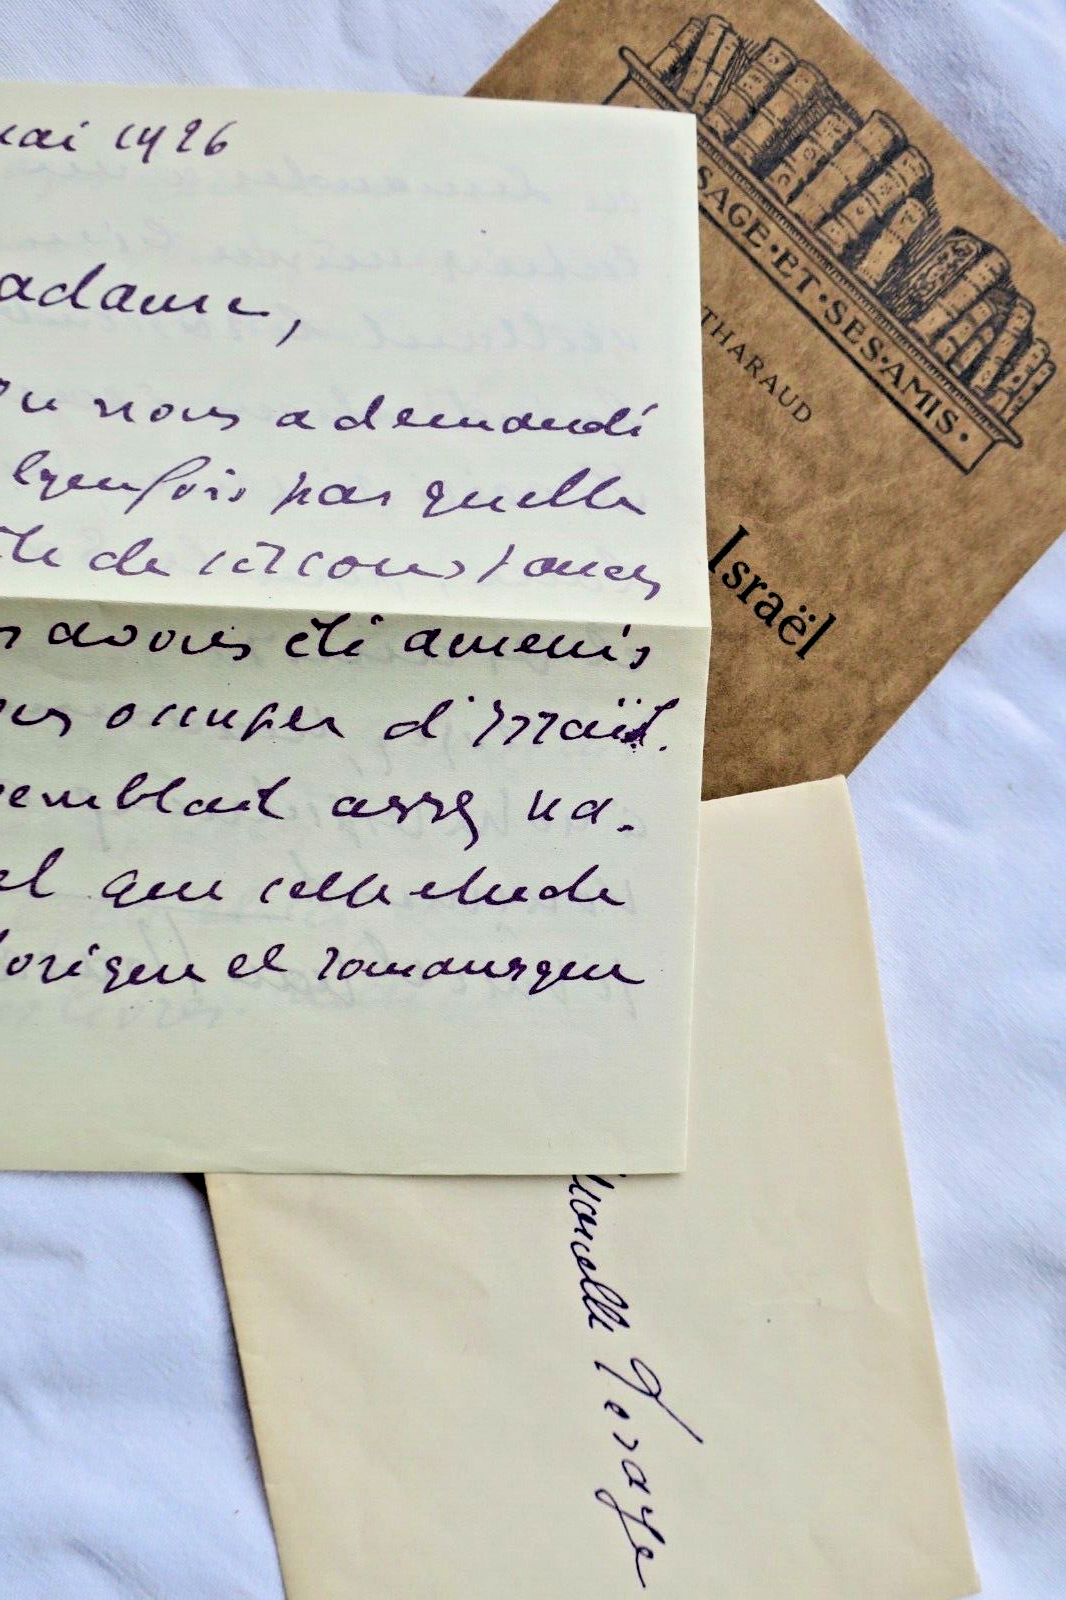 mai 1926
adame,
on nous a demandé
lquefois par quelle
ite de circonstances
s avons été amenés
ous occuper d'Israël.
semblait assez na-
el que cette étude
torique et romanesque
SAGE·ET·SES·AMIS·
THARAUD
Israël
Marcelle Lesage